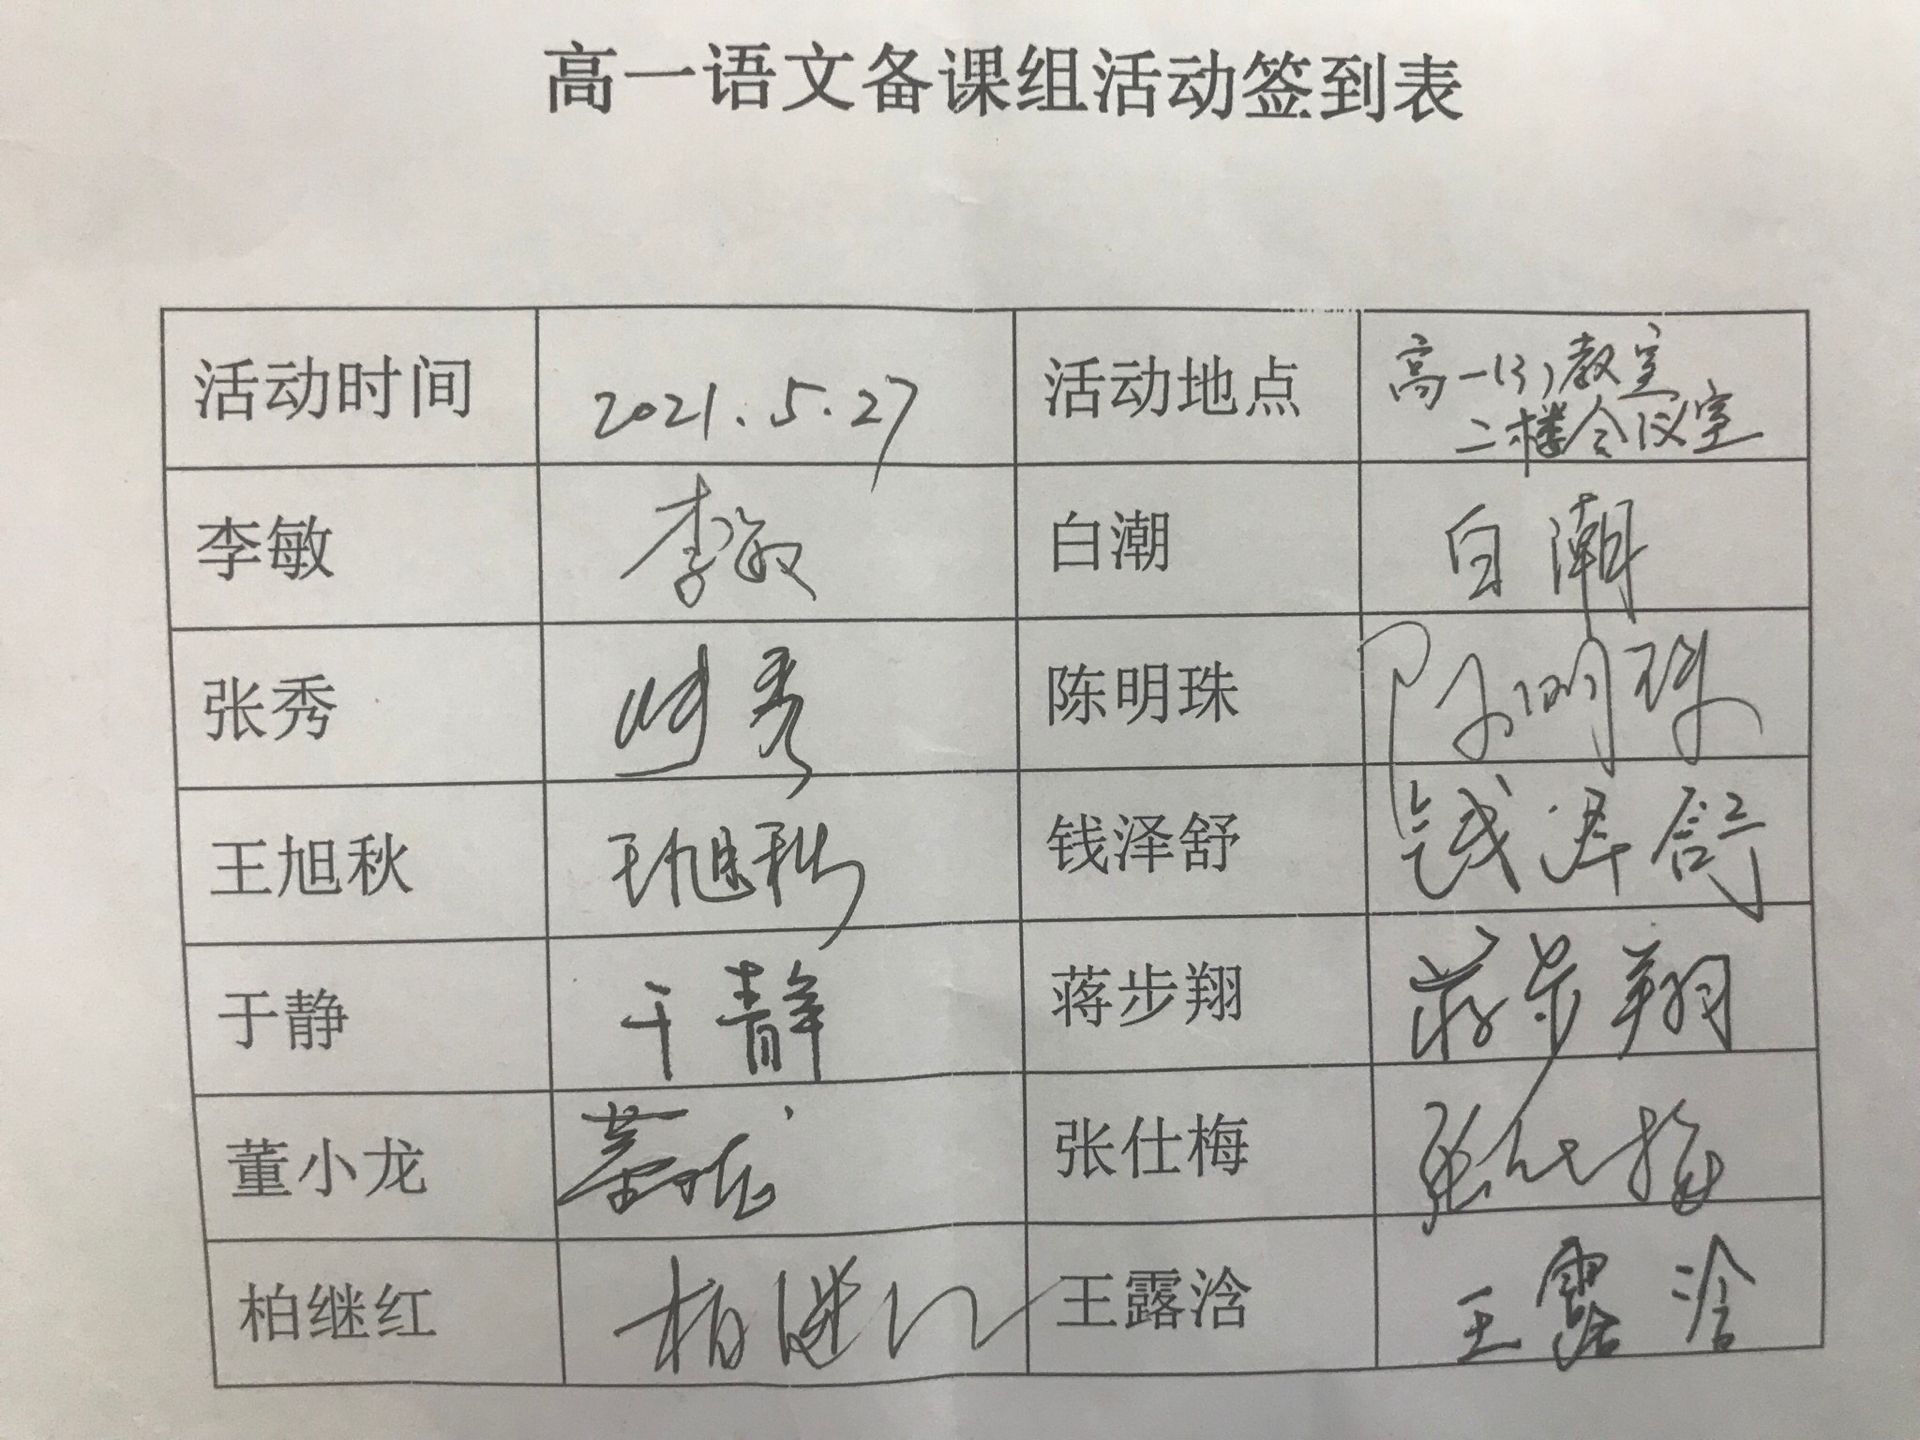 高一语文备课组活动签到表
活动时间 2021.5.27 活动地点 高一(3)教室
二楼会议室
李敏 李敏 白潮 白潮
张秀 张秀 陈明珠 陈明珠
王旭秋 王旭秋 钱泽舒 钱泽舒
于静 于静 蒋步翔 蒋步翔
董小龙 董小龙 张仕梅 张仕梅
柏继红 柏继红 王露浛 王露浛